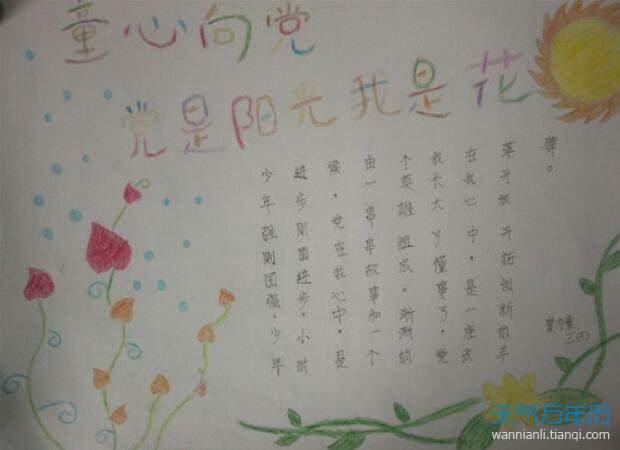 童心向党
党是阳光我是花
少年强则国强,少年
进步则国进步。小时
候,党在我心中,是
由一串串故事和一个
个英雄组成。渐渐的
我长大了懂事了,党
在我心中,是一座改
革开放开拓创新的丰
碑。
天气万年历
wannianli.tianqi.com